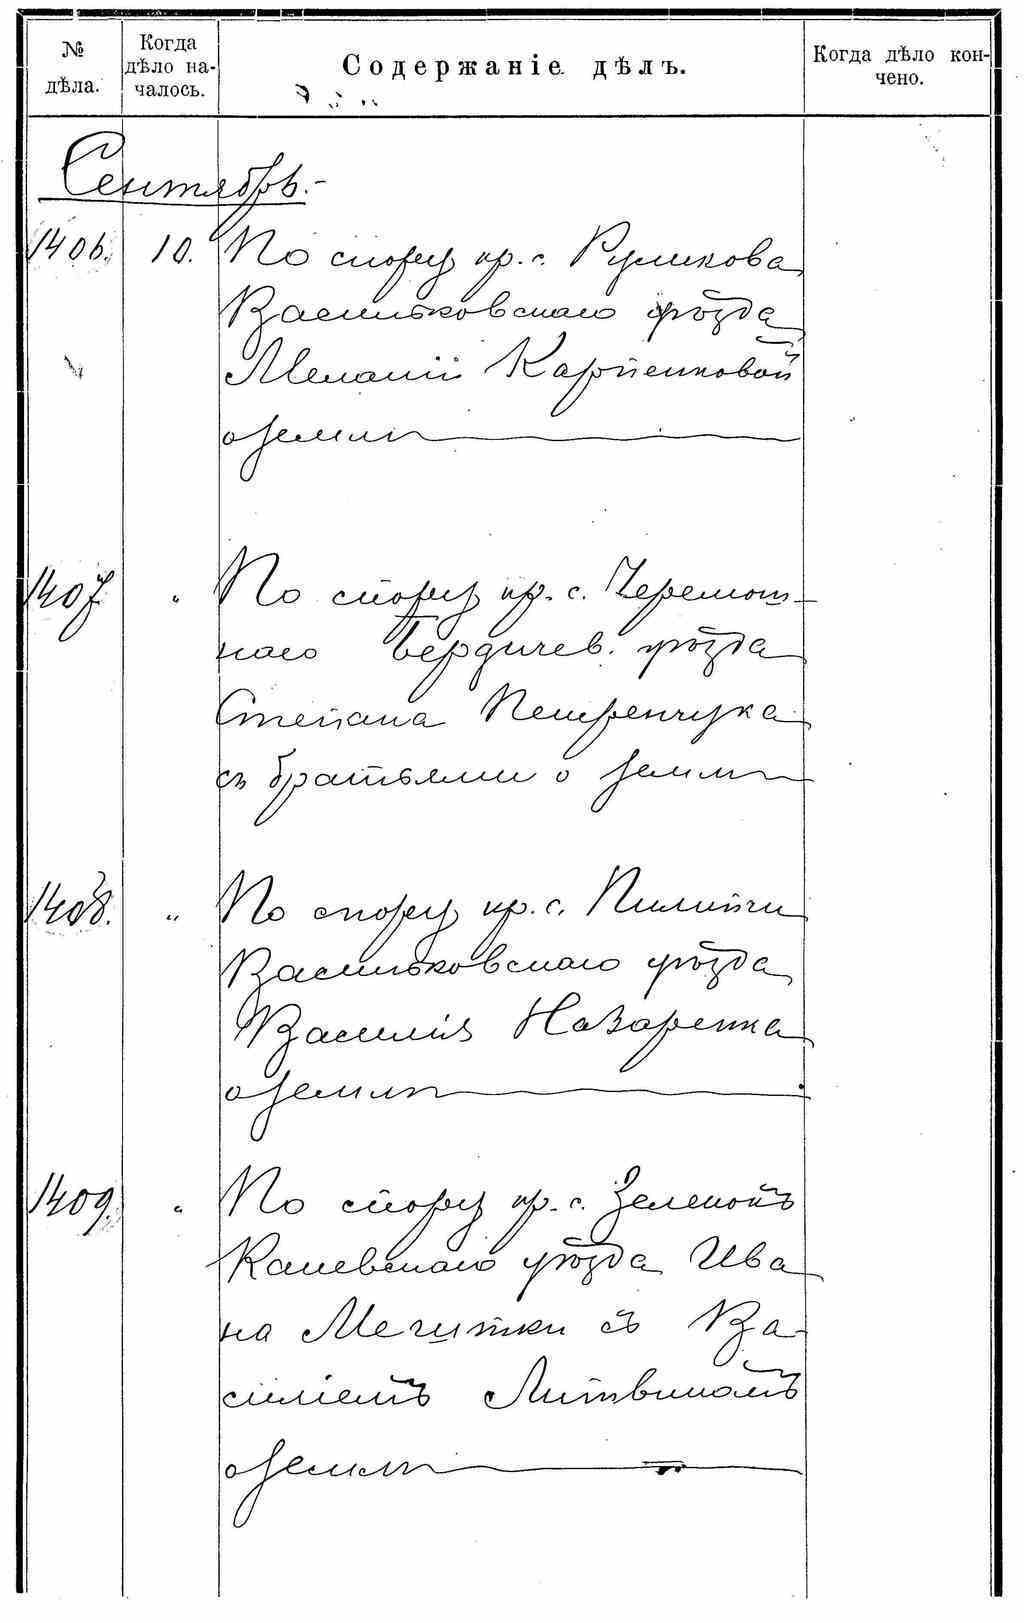 № дѣла.
Когда дѣло на-
чалось.
Содержаніе дѣлъ.
Когда дѣло кон-
чено.
Сентябрь.-
1406. 10. По спору кр. с. Руликова
Васильковскаго уѣзда
Меланіи Карпенковой
о землѣ
1407 " По спору кр. с. Черемош-
наго Бердичев. уѣзда
Степана Петренчука
съ братьями о землѣ
1408. " По спору кр. с. Пилипчи
Васильковскаго уѣзда
Василія Назаренка
о землѣ
1409. " По спору кр. с. Зеленокъ
Каневскаго уѣзда Ива
на Мегитки съ Ва-
силіемъ Литвиномъ
о землѣ